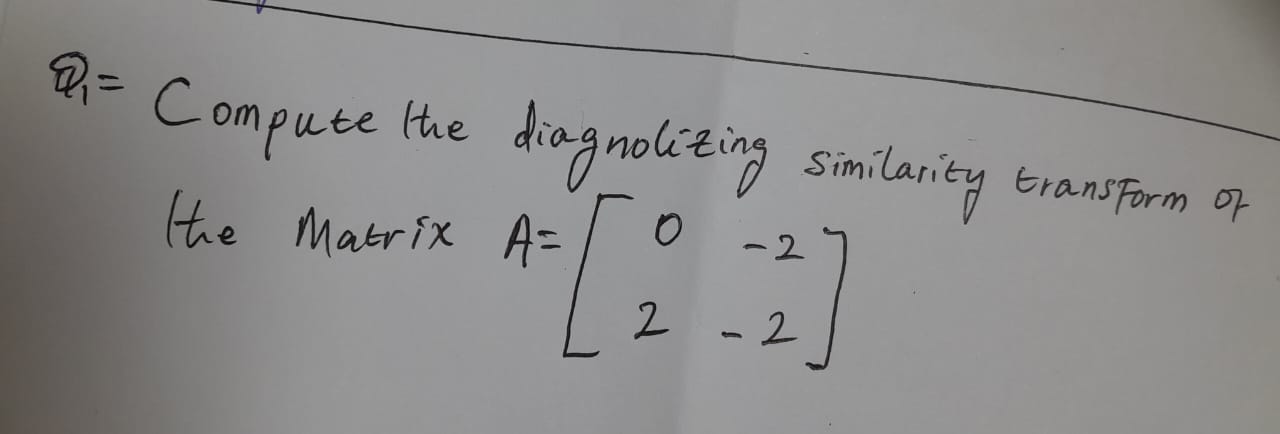 Q₁= Compute the diagnolizing similarity transform of
the Matrix A= [ 0 -2
2 -2 ]